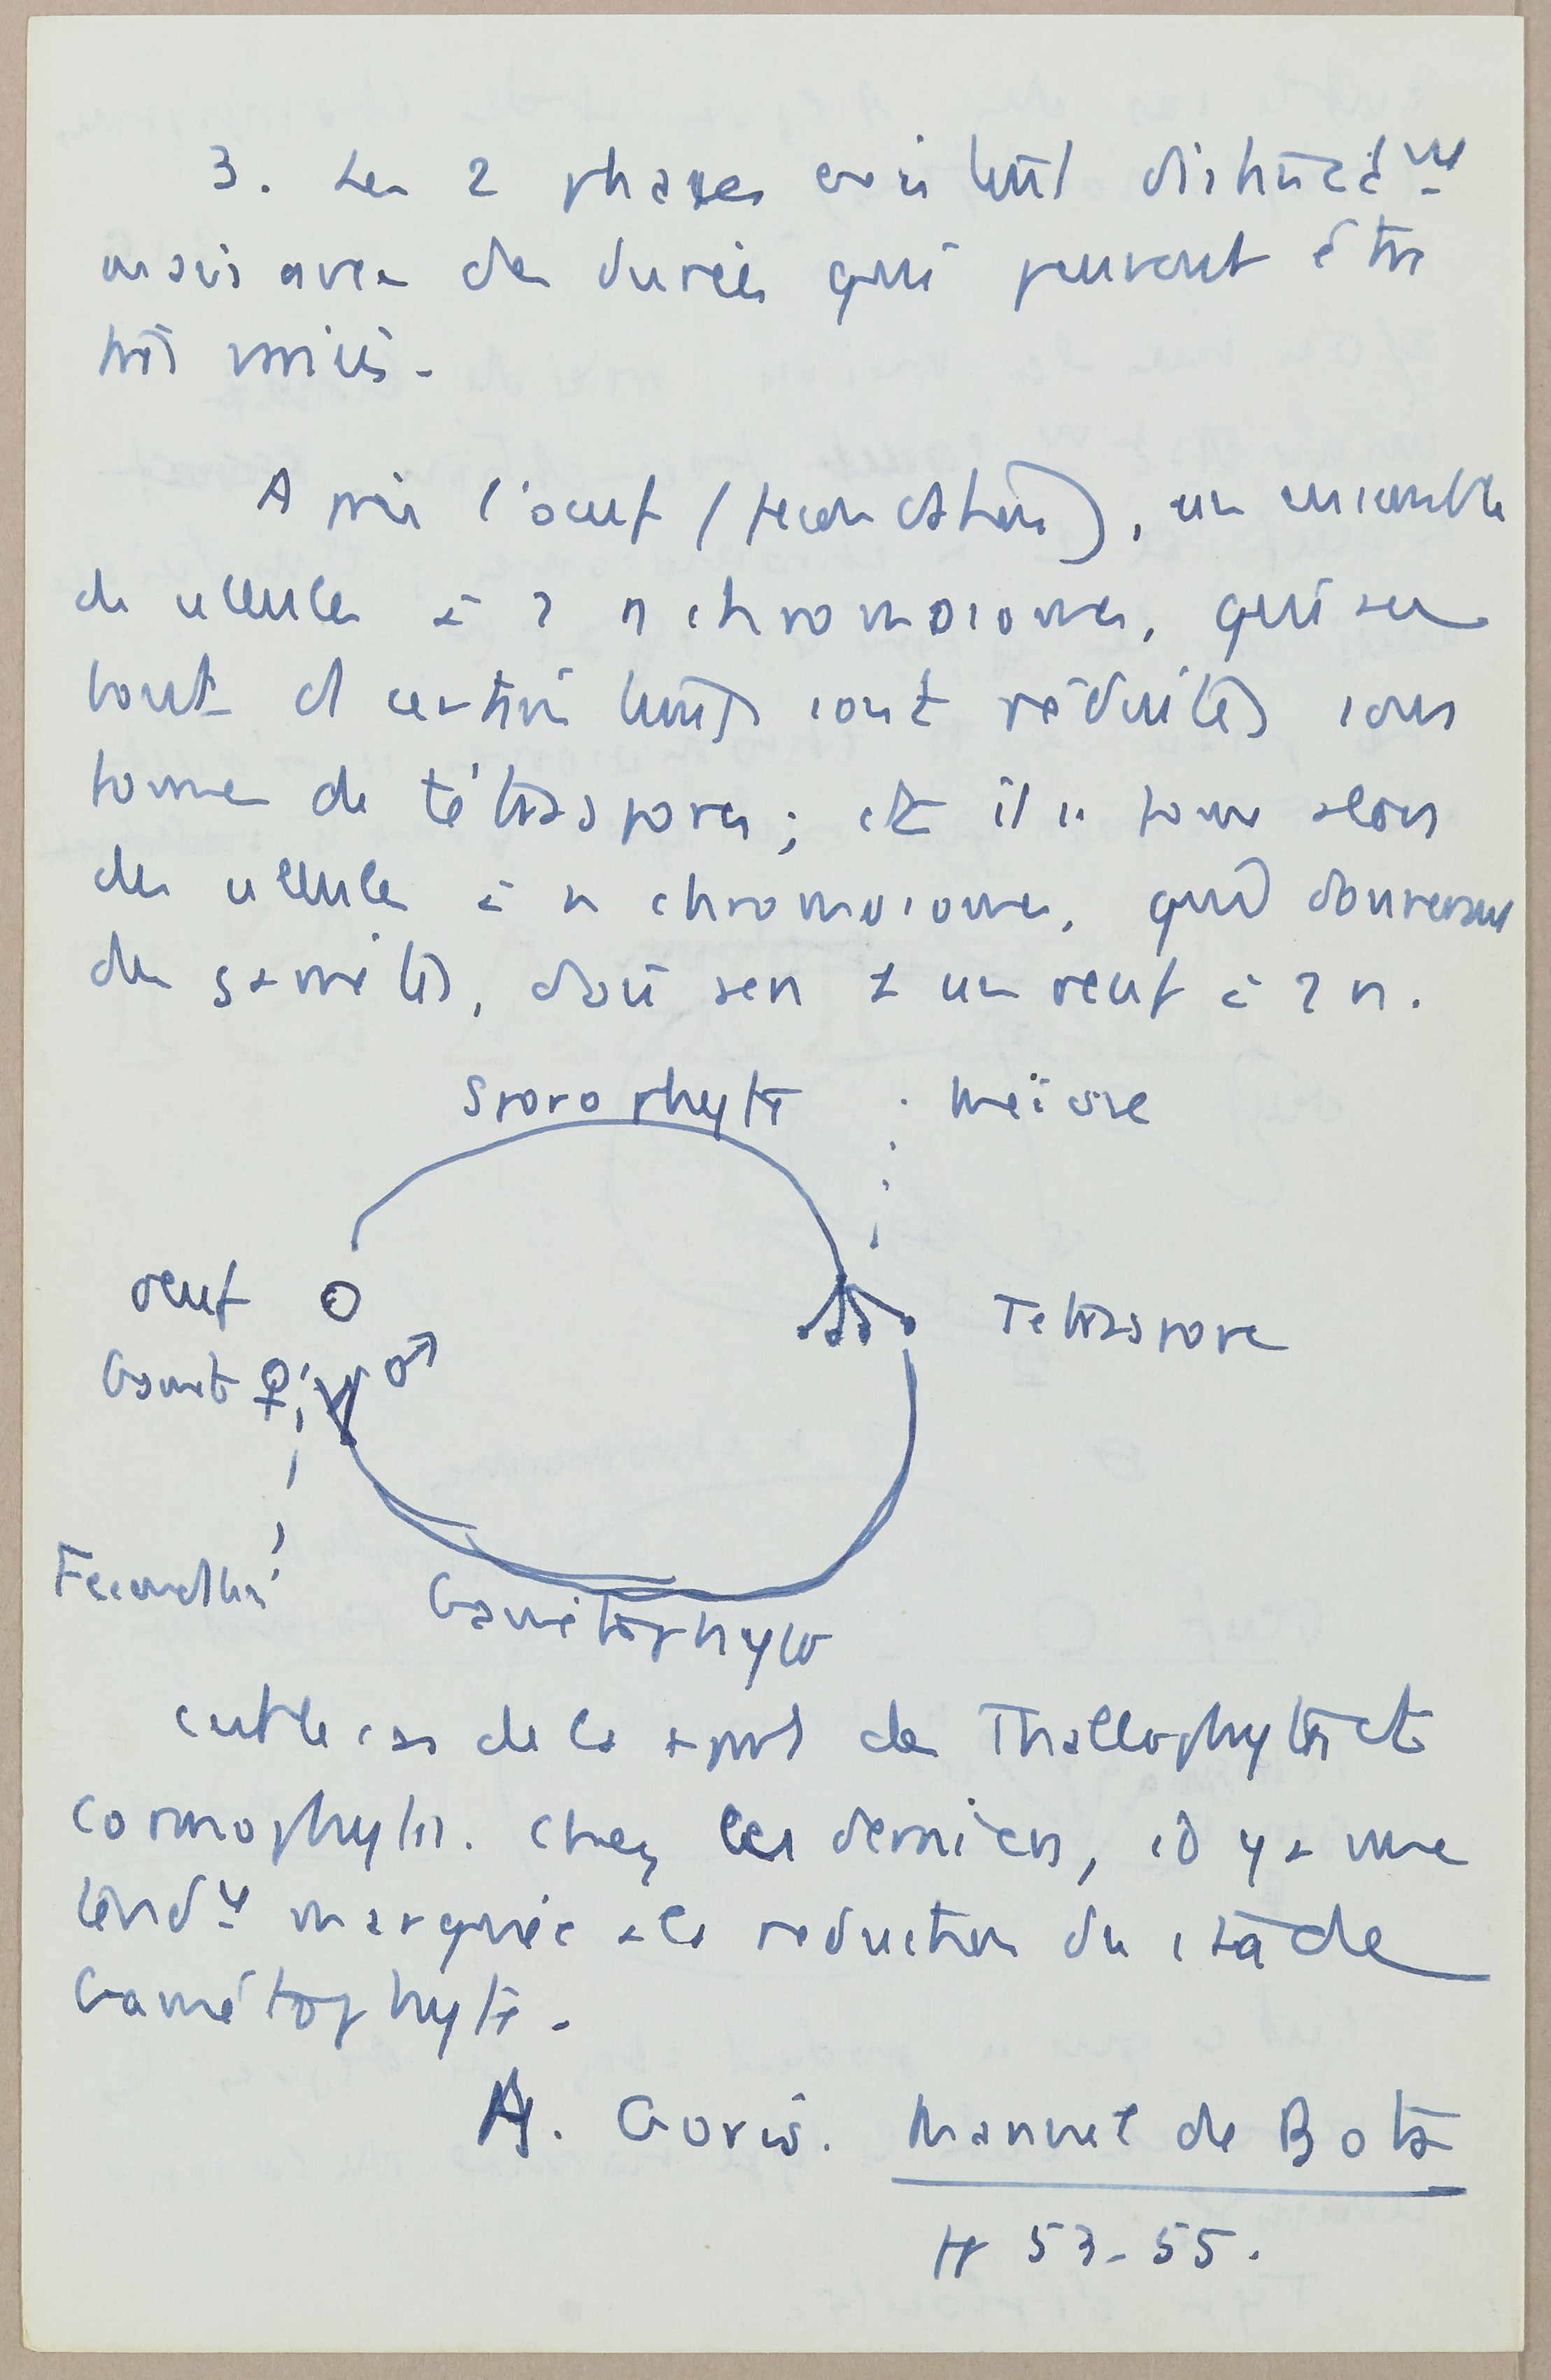 3. Les 2 phases existent distinctemt
mais avec des durées qui peuvent être
très variées.
Après l'oeuf (fécondation), un ensemble
de cellules à 2 n chromosomes, qui se
sont réduites sous
forme de tétraspores; et il se forme alors
des cellules à n chromosomes, qui donneront
des gamètes, donnt un oeuf à 2 n.
Sporophyte : Meïose
oeuf
Tetraspore
Gamète ♀ ♂
Fécondation
Gamétophyte
c'est le cas de la des Thallophytes et
Cormophytes. Chez ces derniers, il y a une
tendce marquée à la réduction du stade
Gamétophyte.
A. Goris. Manuel de Bota
pp 53-55.